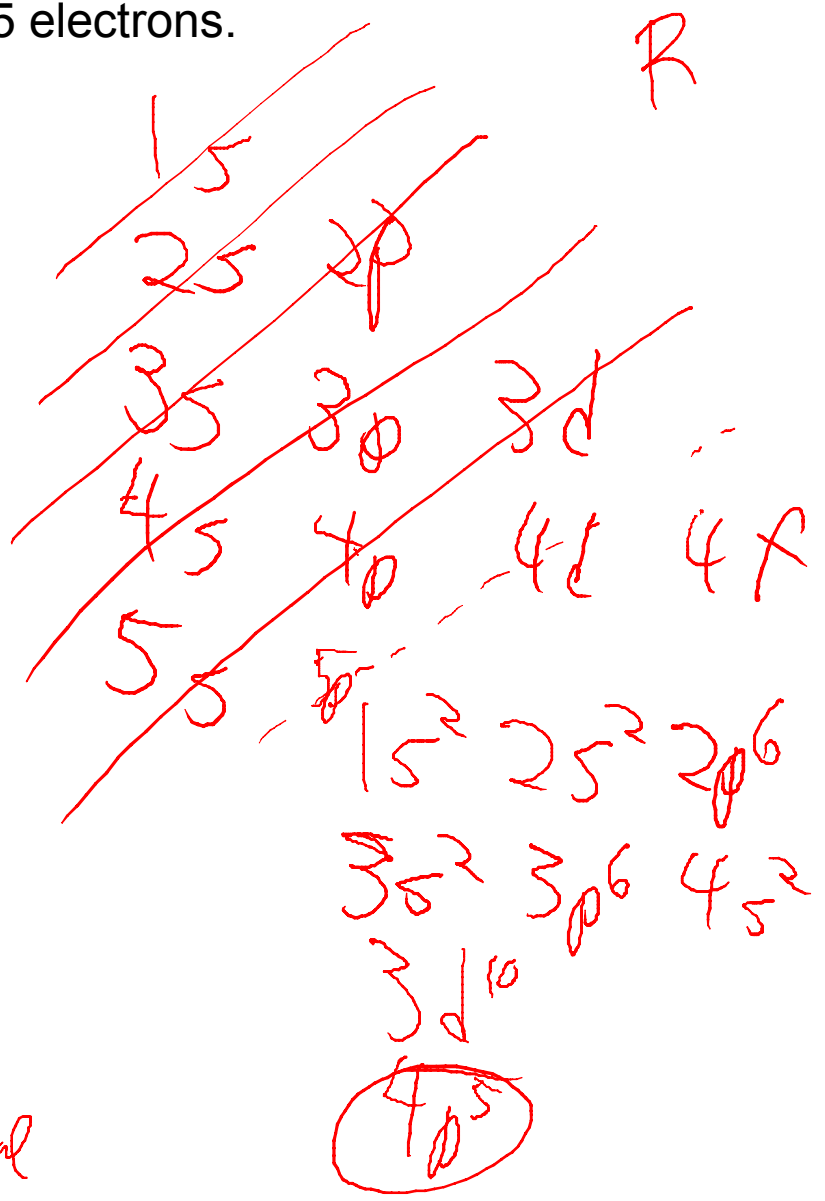 5 electrons.
R
1s
2s 2p
3s 3p 3d
4s 4p 4d 4f
5s 5p
1s² 2s² 2p⁶
3s² 3p⁶ 4s²
3d¹⁰
4p⁵